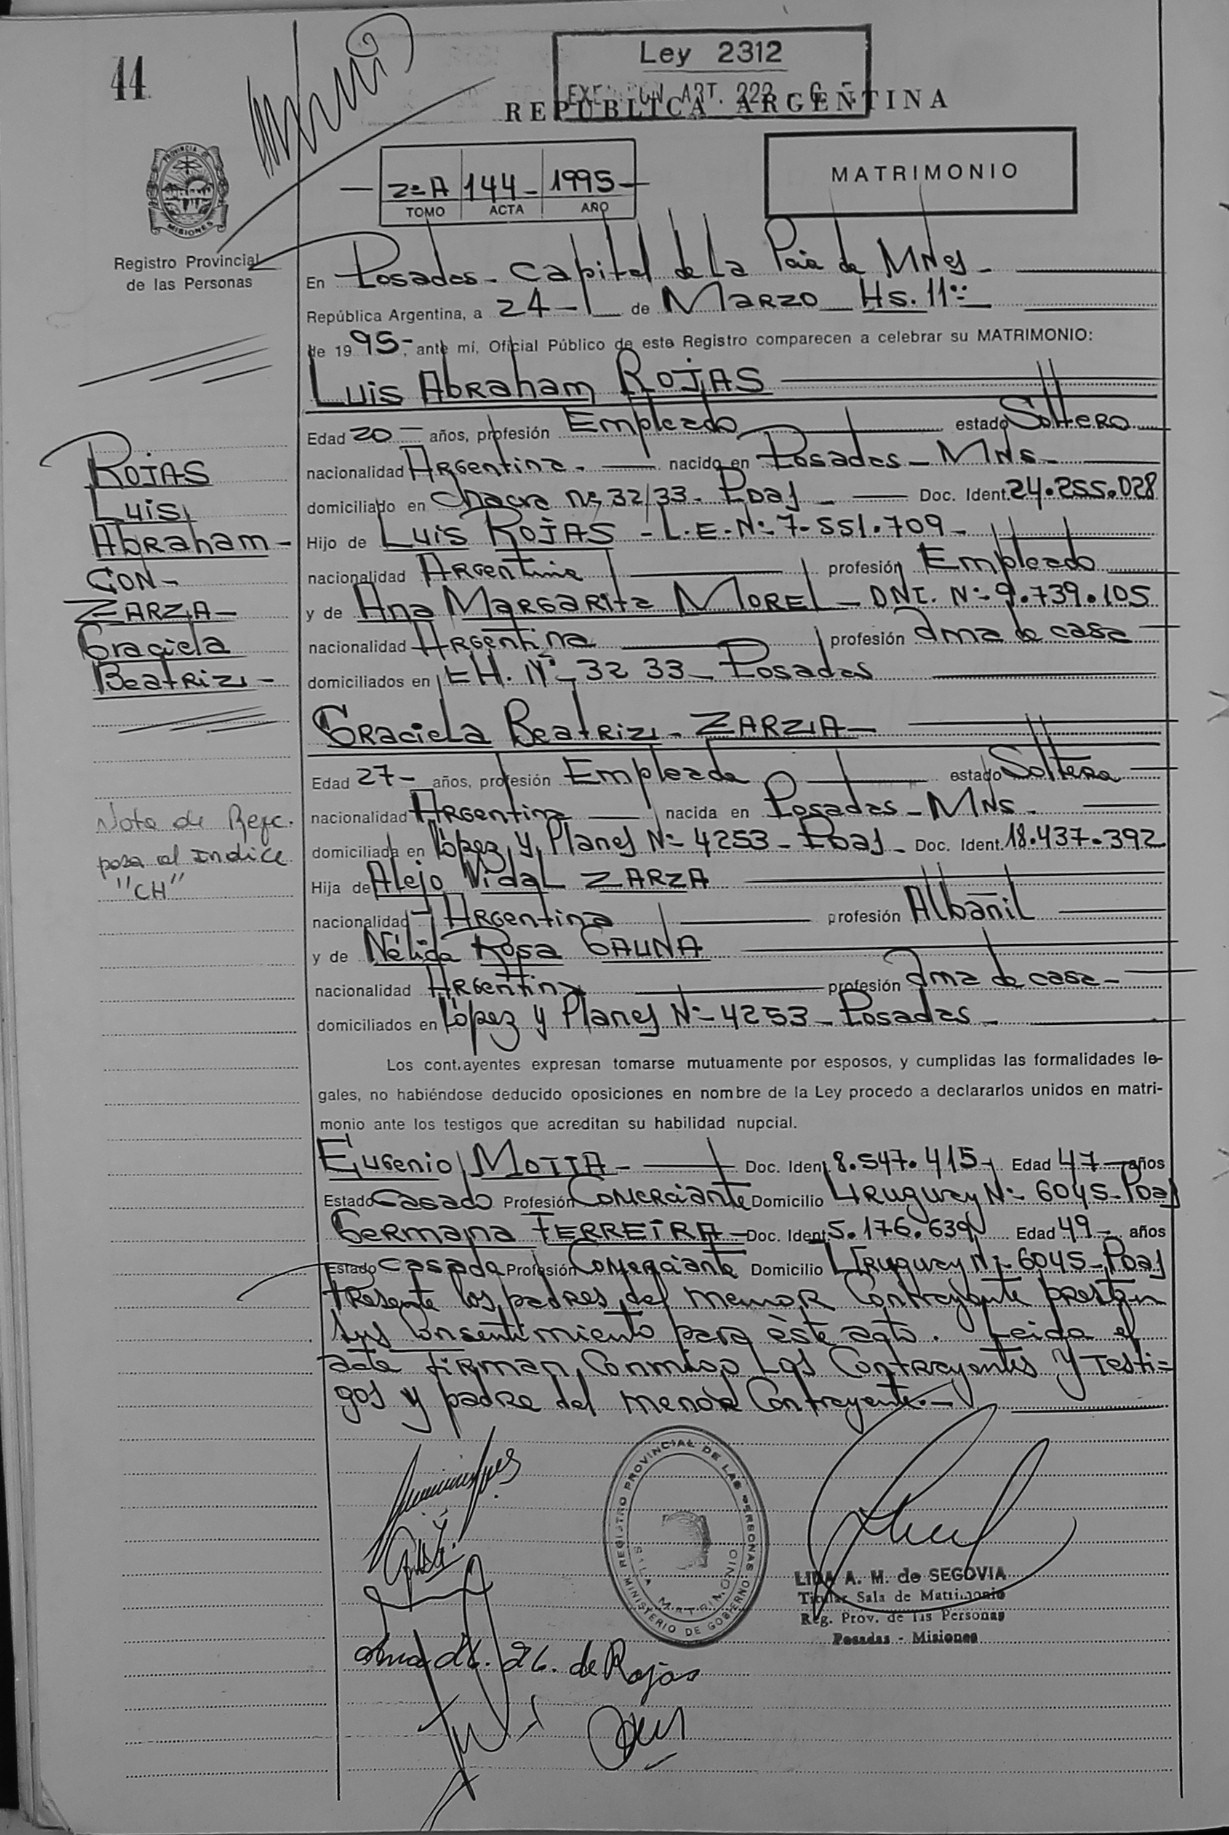 44
Ley 2312
EXENCION ART. 222
REPUBLICA ARGENTINA
PROVINCIA
MISIONES
2º A 144 - 1995 -
TOMO ACTA AÑO
MATRIMONIO
Registro Provincial
de las Personas
En Posadas - Capital de la Pcia de MNes -
República Argentina, a 24 - de Marzo Hs. 11
de 1995 - ante mí, Oficial Público de este Registro comparecen a celebrar su MATRIMONIO:
Luis Abraham ROJAS
Edad 20 - años, profesión Empleado estado Soltero
nacionalidad Argentina - nacido en Posadas - MNS -
domiciliado en Chacra Nº 32/33 - Pdas - Doc. Ident. 24.255.028
Hijo de Luis ROJAS - L.E. Nº 7.551.709 -
nacionalidad Argentina profesión Empleado
y de Ana Margarita MOREL - DNI. Nº 9.739.105
nacionalidad Argentina profesión Ama de casa
domiciliados en CH. Nº 32 33 - Posadas
ROJAS
Luis
Abraham -
CON -
ZARZA -
Graciela
Beatriz -
Graciela Beatriz - ZARZA -
Edad 27 - años, profesión Empleada estado Soltera
nacionalidad Argentina nacida en Posadas - MNS -
domiciliada en López y Planes Nº 4253 - Pdas - Doc. Ident. 18.437.392
Hija de Alejo Vidal ZARZA
nacionalidad Argentina profesión Albañil
y de Nélida Rosa GAUNA
nacionalidad Argentina profesión Ama de casa -
domiciliados en López y Planes Nº 4253 - Posadas -
Nota de Refe.
pasa al Indice
"CH"
Los contrayentes expresan tomarse mutuamente por esposos, y cumplidas las formalidades le-
gales, no habiéndose deducido oposiciones en nombre de la Ley procedo a declararlos unidos en matri-
monio ante los testigos que acreditan su habilidad nupcial.
Eugenio MOTTA - Doc. Ident. 8.547.415 - Edad 47 - años
Estado Casado Profesión Comerciante Domicilio Uruguay Nº 6045 - Pdas
Germana FERREIRA - Doc. Ident. 5.176.639 Edad 49 - años
Estado Casada Profesión Comerciante Domicilio Uruguay Nº 6045 - Pdas
Presente los padres del menor Contrayente prestan
sus Consentimiento para éste acto. Leida el
acta firman Conmigo Los Contrayentes y Testi-
gos y padre del menor Contrayente. -
REGISTRO PROVINCIAL DE LAS PERSONAS
SALA MATRIMONIO
MINISTERIO DE GOBIERNO
LIDA A. M. de SEGOVIA
Titular Sala de Matrimonio
Reg. Prov. de las Personas
Posadas - Misiones
Ana M. M. de Rojas